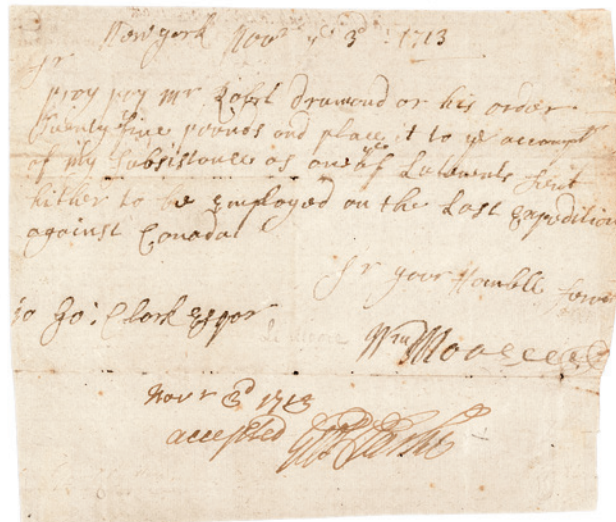 New york Novr ye 3d 1713
Sr
pray pay mr Robt Drumond or his order
twenty five pounds and place it to ye accompt
of my Subsistance as one of ye Lutenents sent
hither to be Employed on the Last Expedition
against Canada
Sr your Humble Serv
To Go: Clark Esqor
Wm Moore
Novr 3d 1713
accepted Geo Clarke